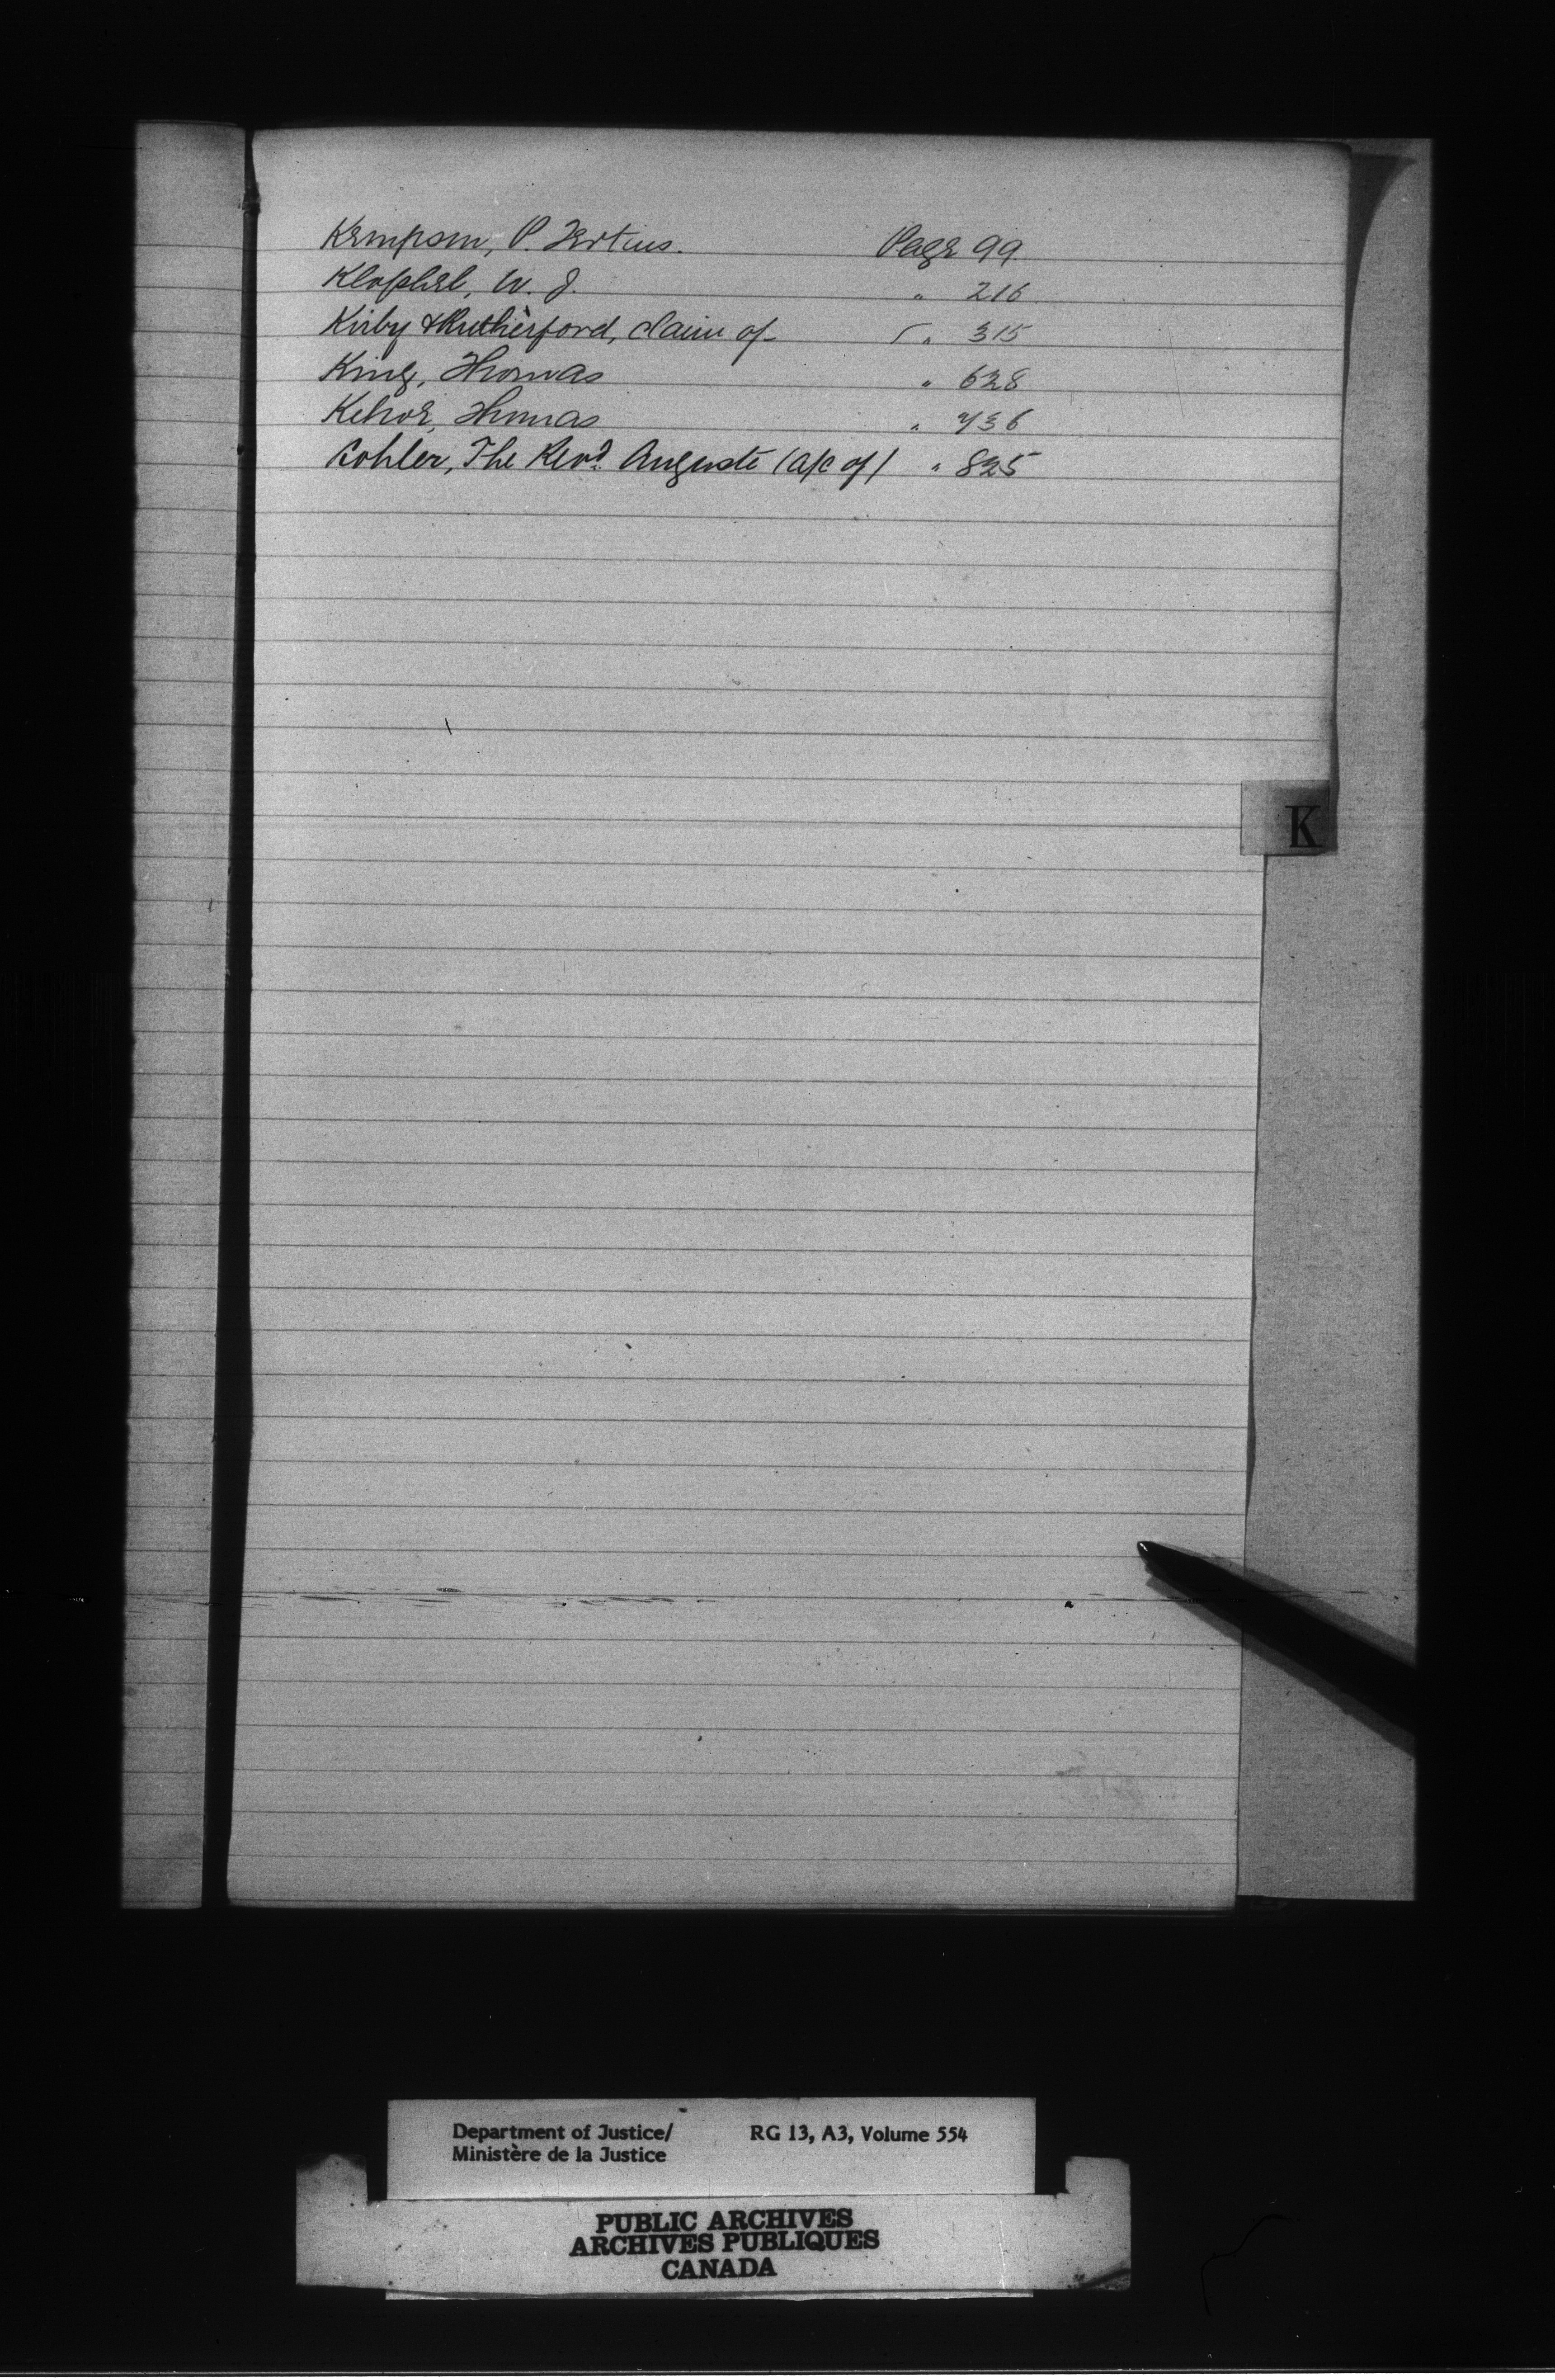 Kempson, P. Tertius. Page 99
Klophel, W. J. " 216
Kirby & Rutherford, claim of " 315
King, Thomas " 628
Kehoe, Thomas " 736
Kohler, The Revd. Auguste (a/c of) " 825
K
Department of Justice/ RG 13, A3, Volume 554
Ministère de la Justice
PUBLIC ARCHIVES
ARCHIVES PUBLIQUES
CANADA